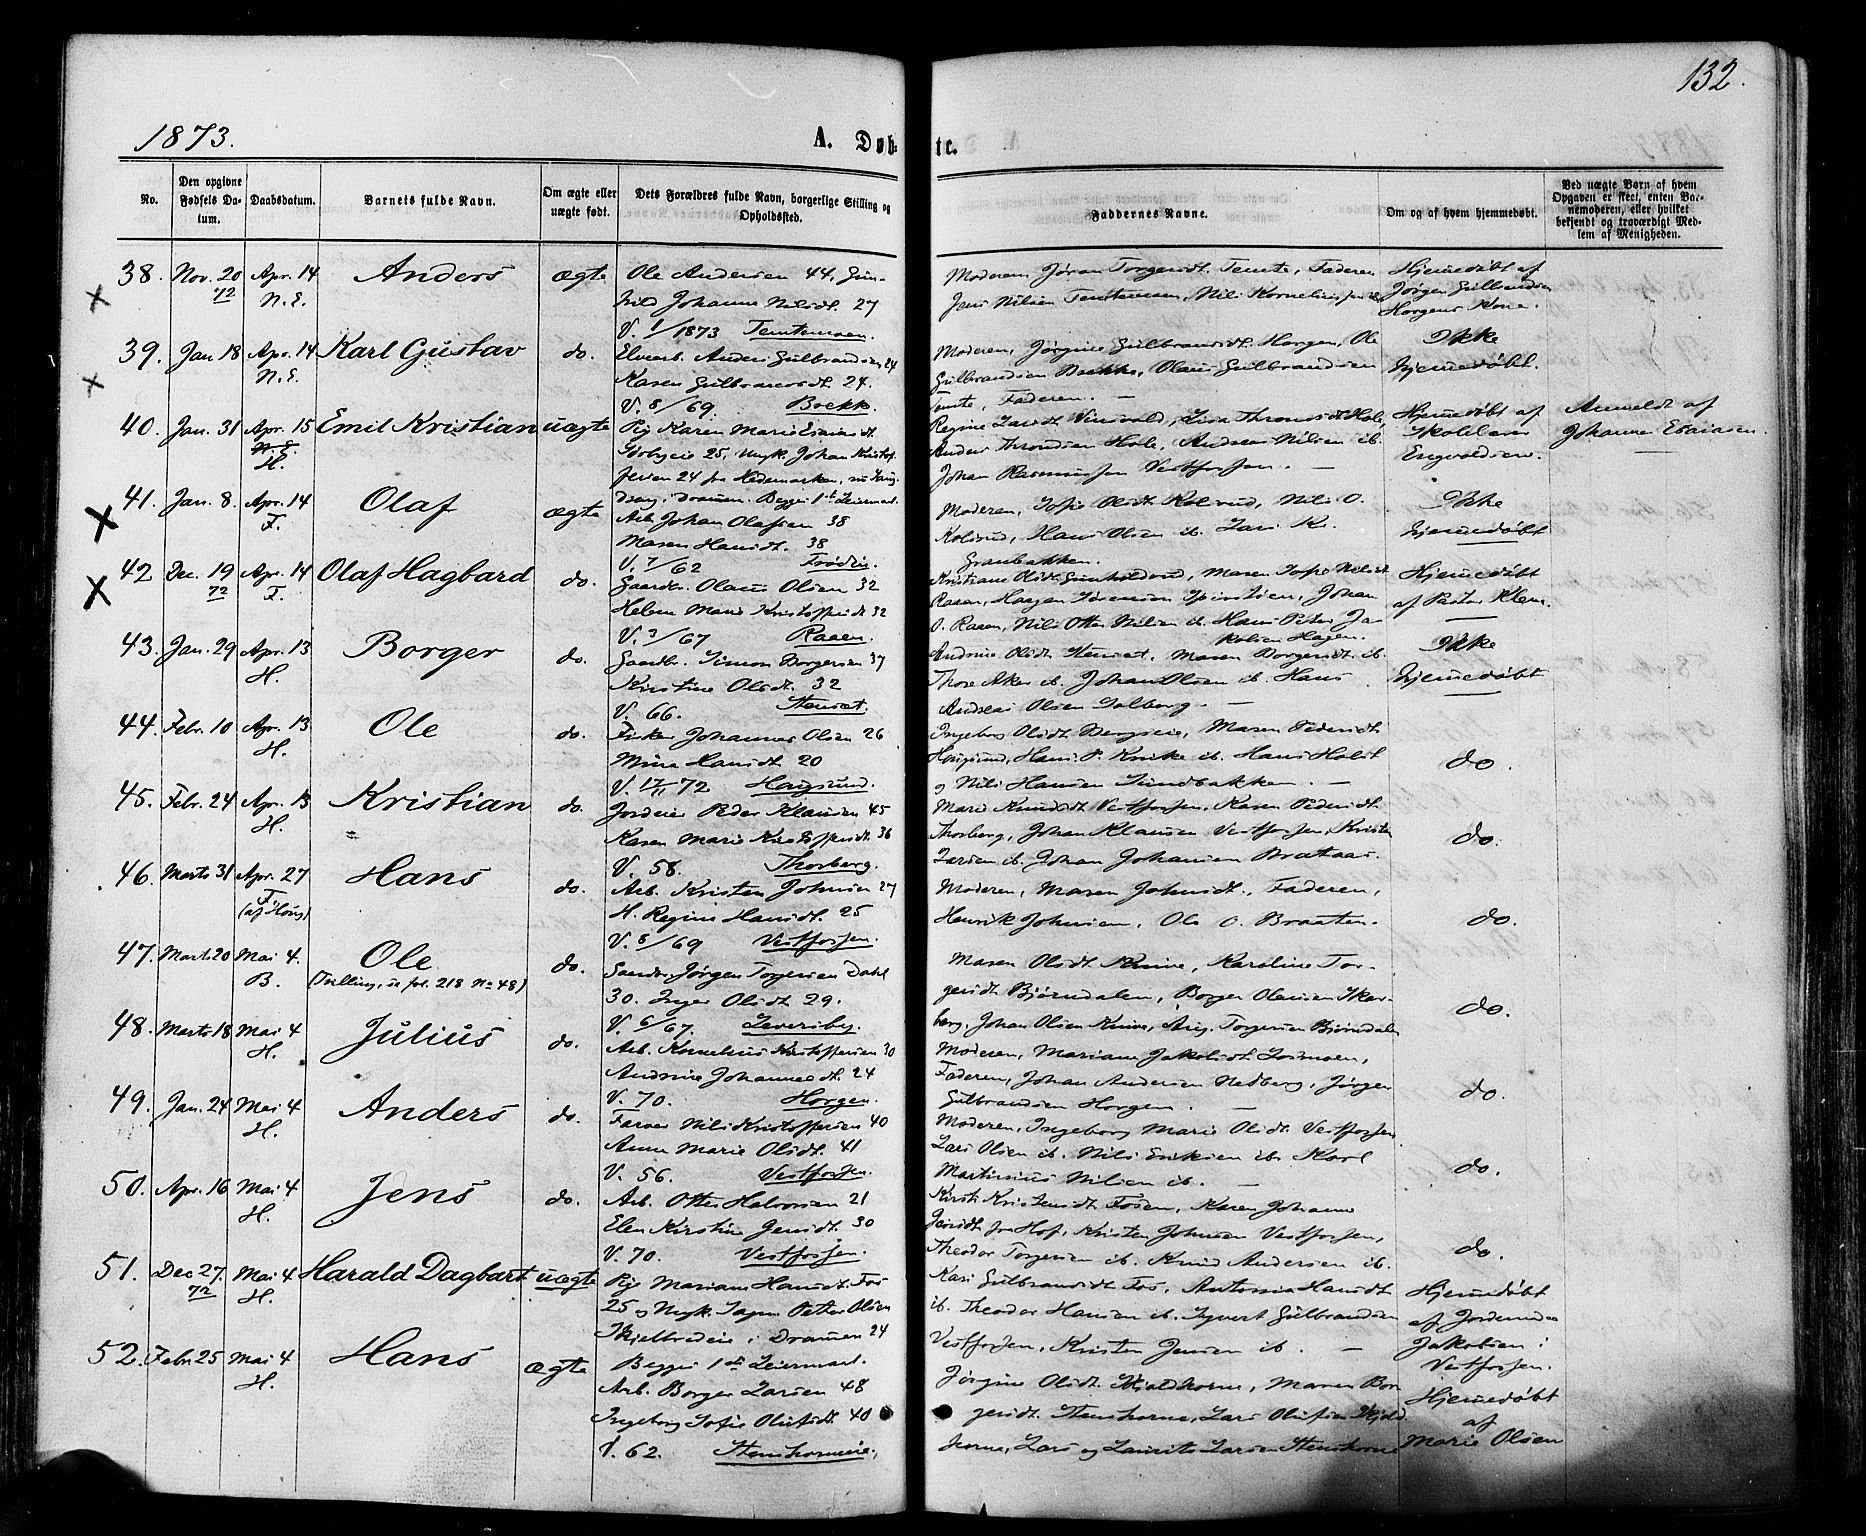 132.
1873.
A. Døbte.
No.
Den opgivne Fødsels Datum.
Daabsdatum.
Barnets fulde Navn.
Om ægte eller uægte født.
Dets Forældres fulde Navn, borgerlige Stilling og Opholdssted.
Faddernes Navne.
Om og af hvem hjemmedøbt.
Ved uægte Børn af hvem Opgaven er skeet, enten Barnemoderen, eller hvilket bekjendt og troværdigt Medlem af Menigheden.
38. Nov. 20 72 Apr. 14 N.E. Anders ægte
Ole Andersen 44, Gun-
hild Johanne Nilsdt. 27
V. 1/1873
Moderen, Jøran Torgersdt. Temte, Faderen
Jens Nilsen
Hjemedøbt af
Jørgen Gulbrandsen
Horgens Kone.
39. Jan. 18 Apr. 14 N.E. Karl Gustav do.
Anders Gulbrandsen 24
Karen Gulbrandsdt. 24.
V. 8/69. Brekk.
Moderen, Jørgine Gulbrandsdt. Horgen, Ole
Gulbrandsen Brekke, Olaus Gulbrandsen
Temte, Faderen. —
Ikke
hjemedøbt.
40. Jan. 31 Apr. 15 N.E. H. Emil Kristian uægte
Pig. Karen Marie Esaiasdt.
25, Ungk. Johan Kristof-
fersen 24 fra Hedemarken, nu
Drammen. Begges 1ste Leiermaal.
Regine Larsdt.
Anders Throndsen Hole, Andreas Nilsen ib.
Johan Rasmussen Vestfossen. —
Hjemedøbt af
Skolelærer
Engvoldsen.
Anmeldt af
Johannes Esaiasen.
41. Jan. 8. Apr. 14 F. Olaf ægte
Arb. Johan Olafsen 38
Maren Hansdt. 38
V. 7/62
Moderen, Sofie Olsdt. Kolsrud, Nils O.
Kolsrud, Hans Olsen ib. Lars K.
Granbakken.
Ikke
hjemedøbt
42 Dec. 19 72 Apr. 14 F. Olaf Hagbard do.
Gaardbr. Olaus Olsen 32
Helene Marie Kristoffersdt. 32
V. 3/67 Raaen.
Kristiane Olsdt. Gunhildsrud, Maren Sofie Nilsdt.
Raaen, Haagen Sørensen
O. Raaen, Nils Otter Nilsen ib. Hans Peter Ja-
kobsen Hagen.
Hjemedøbt
af Pastor Klem.
43. Jan. 29 Apr. 13 H. Borger do.
Gaardbr. Simon Borgersen 37
Kristine Olsdt. 32
V. 66. Stenset.
Andrine Olsdt. Stenset, Maren Borgersdt. ib.
Thore Aker ib. Johan Olsen ib. Hans
Andreas Olsen Solberg. —
Ikke
hjemedøbt
44. Febr. 10 Apr. 13 H. Ole do.
Fisker Johannes Olsen 26
Mina Hansdt. 20
V. 17/11 72 Hougsund.
Ingeborg Olsdt. Bergseie, Maren Pedersdt.
Hougsund, Hans P. Knike ib. Hans Holst
og Nils Hansen Sundbakken. —
do.
45. Febr. 24 Apr. 13 H. Kristian do.
Peder Klausen 45
Karen Marie Kristoffersdt. 36
V. 58. Thorberg.
Marie Knudsdt. Vestfossen, Karen Pedersdt.
Thorberg, Johan Klausen Vestfossen, Kristen
Larsen ib. Johan Johansen Brataas.
do.
46. Marts 31 Apr. 27 F. (af Houg) Hans do.
Arb. Kristen Johnsen 27
H. Regine Hansdt. 25
V. 8/69 Vestfossen.
Moderen, Maren Johnsdt., Faderen,
Henrik Johnsen, Ole O. Braaten.
do.
47. Marts 20 Mai 4. B. Ole do.
(Tvilling, se fol. 218 No 48)
Gaardbr. Jørgen Torgersen Dahl
30. Inger Olsdt. 29.
V. 6/67. Leversby.
Maren Olsdt. Knive, Karoline Tor-
gersdt. Bjørndalen, Borger Olausen Sker-
berg, Johan Olsen Knive, Aug. Torgersen Bjørndalen
do.
48. Marts 18 Mai 4 H. Julius do.
Arb. Kornelius Kristoffersen 30
Andrine Johannesdt. 24
V. 70. Horgen.
Moderen, Mariane Jakobsdt.
Faderen, Johan Andersen Nedberg, Jørgen
Gulbrandsen Horgen. —
do.
49. Jan. 24 Mai 4 H. Anders do.
Farver Nils Kristoffersen 40
Anne Marie Olsdt. 41
V. 56. Vestfossen.
Moderen, Ingeborg Marie Olsdt. Vestfossen,
Lars Olsen ib. Nils Eriksen ib. Karl
Martinius Nilsen ib. —
do.
50. Apr. 16 Mai 4 H. Jens do.
Arb. Otter Halvorsen 21
Elen Kirstine Jensdt. 30
V. 70. Vestfossen.
Kirsti Kristensdt. Fosen, Karen Johanne
Jensdt. fra Hof, Kristen Johnsen Vestfossen,
Theodor Torgersen ib. Knud Andersen ib.
do.
51. Dec. 27. 72 Mai 4 H. Harald Dagbart uægte
Pig. Mariane Hansdt. Fos
25 og Ungk. Petter Olsen
i Drammen 24
Begges 1ste Leiermaal.
Kari Gulbrandsdt. Fos, Antonia Hansdt.
ib. Theodor Hansen ib. Syvert Gulbrandsen
Vestfossen, Kristen Jensen ib. —
Hjemedøbt
af Jordemo.
Jakobsen i
Vestfossen.
52. Febr. 25 Mai 4 H. Hans ægte
Arb. Borger Larsen 48
Ingeborg Sofie Olufsdt. 40
V. 62. Stenshorneie,
Jørgine Olsdt. Skjoldhorne, Maren Bor-
gersdt. Stenshorne, Lars Olufsen Skjold-
horne, Lars og Laurits Larsen Stenshorne
Hjemedøbt
af
Marie Olsen